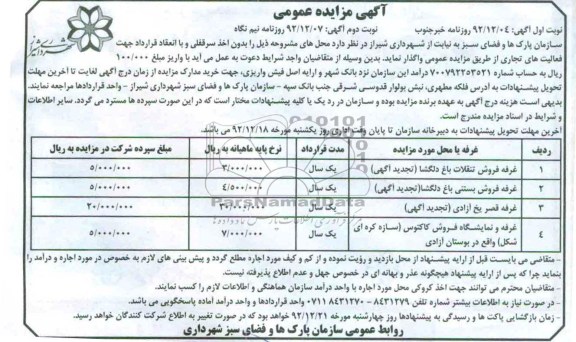 آگهی مزایده عمومی
نوبت اول آگهی: ۹۲/۱۲/۰۴ روزنامه خبرجنوب نوبت دوم آگهی: ۹۲/۱۲/۰۷ روزنامه نیم نگاه
سازمان پارک ها و فضای سبز به نیابت از شهرداری شیراز در نظر دارد محل های مشروحه ذیل را بدون اخذ سرقفلی و با انعقاد قرارداد جهت
فعالیت های تجاری از طریق مزایده عمومی واگذار نماید. بدین وسیله از متقاضیان واجد شرایط دعوت به عمل می آید با واریز مبلغ ۱۰۰/۰۰۰
ریال به حساب شماره ۷۰۰۷۹۲۲۵۳۵۲۱ درآمد این سازمان نزد بانک شهر و ارایه اصل فیش واریزی، جهت خرید مدارک مزایده از زمان درج آگهی لغایت تا آخرین مهلت
تحویل پیشنهادات به آدرس فلکه مطهری، نبش بولوار قدوسی شرقی جنب بانک سپه - سازمان پارک ها و فضای سبز شهرداری شیراز - واحد قراردادها مراجعه نمایند.
بدیهی است هزینه درج آگهی به عهده برنده مزایده بوده و سازمان در رد یک یا کلیه پیشنهادات مختار است که در این صورت سپرده ها مسترد می گردد. سایر اطلاعات
و شرایط در اسناد مزایده مندرج است.
آخرین مهلت تحویل پیشنهادات به دبیرخانه سازمان تا پایان وقت اداری روز یکشنبه مورخه ۹۲/۱۲/۱۸ می باشد.
ردیف غرفه یا محل مورد مزایده مدت قرارداد نرخ پایه ماهیانه به ریال مبلغ سپرده شرکت در مزایده به ریال
۱ غرفه فروش تنقلات باغ دلگشا (تجدید آگهی) یک سال ۳/۰۰۰/۰۰۰ ۵/۰۰۰/۰۰۰
۲ غرفه فروش بستنی باغ دلگشا(تجدید آگهی) یک سال ۴/۵۰۰/۰۰۰ ۵/۰۰۰/۰۰۰
۳ غرفه قصر یخ آزادی (تجدید آگهی) یک سال ۳۰/۰۰۰/۰۰۰ ۲۰/۰۰۰/۰۰۰
۴ غرفه و نمایشگاه فروش کاکتوس (سازه کره ای شکل) واقع در بوستان آزادی یک سال ۷/۰۰۰/۰۰۰ ۵/۰۰۰/۰۰۰
ParsNamadData
- متقاضی می بایست قبل از ارایه پیشنهاد از محل بازدید و رؤیت نموده و از کم و کیف مورد اجاره مطلع گردد و پیش بینی های لازم به خصوص در مورد اجاره و درآمد را
بنماید چرا که پس از ارایه پیشنهاد هیچگونه عذر و بهانه ای در خصوص جهل و عدم اطلاع پذیرفته نیست.
- متقاضیان محترم می توانند جهت اخذ کروکی محل مورد اجاره با واحد درآمد سازمان هماهنگی و اطلاعات لازم را کسب نمایند.
- در صورت نیاز به اطلاعات بیشتر شماره تلفن ۸۴۳۱۲۷۹ - ۸۴۳۱۲۷۰ ۰۷۱۱ واحد قراردادها و واحد درآمد آماده پاسخگویی می باشد.
- زمان بازگشایی پاکت ها و رسیدگی به پیشنهادها روز چهارشنبه مورخه ۹۲/۱۲/۲۱ خواهد بود که در صورت تغییر به اطلاع شرکت کنندگان خواهد رسید.
روابط عمومی سازمان پارک ها و فضای سبز شهرداری